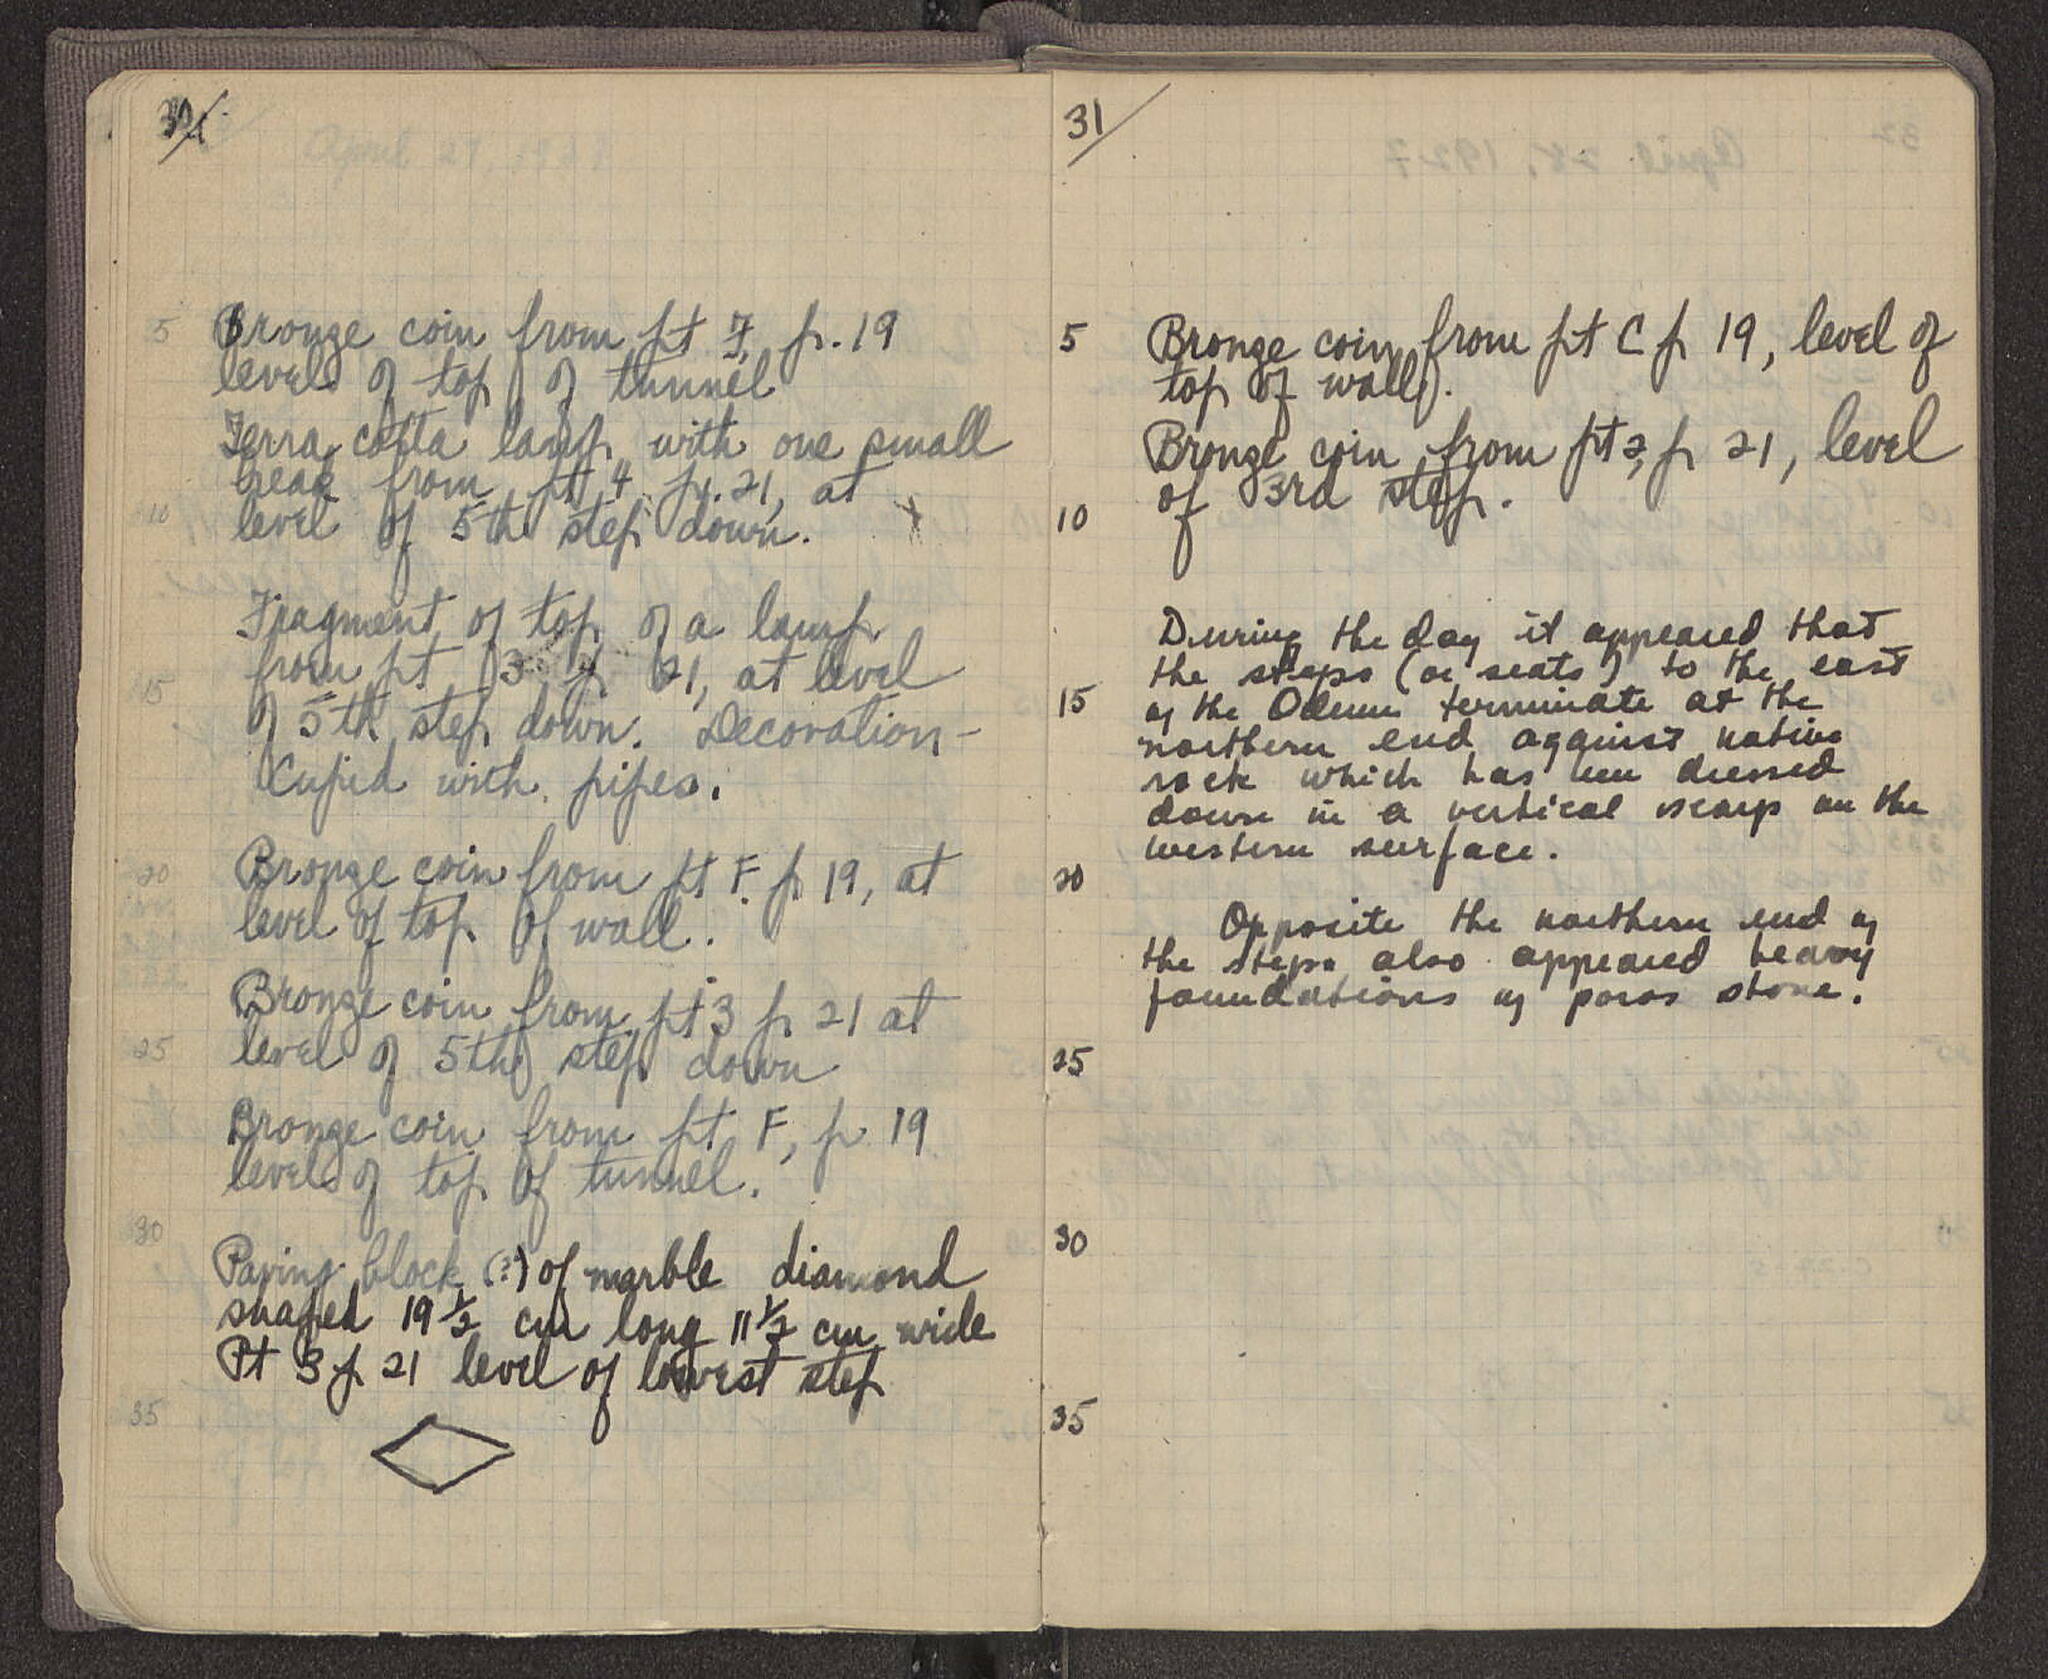 April 27, 1927
5
Bronze coin from pt F, p. 19
level of top of tunnel
Terra cotta lamp with one small
break from pt 4 p. 21, at
10
level of 5th step down.
Fragment of top of a lamp
from pt 3 p 21, at level
15
of 5th step down. Decoration –
Cupid with pipes.
20
Bronze coin from pt F. p 19, at
level of top of wall.
Bronze coin from pt 3 p 21 at
25
level of 5th step down
Bronze coin from pt F, p 19
level of top of tunnel.
30
Paving block (?) of marble diamond
shaped 19 1/2 cm long 11 1/2 cm wide
Pt 3 p 21 level of lowest step
35
31
5
Bronze coin from pt C p 19, level of
top of wall.
Bronze coin from pt 2, p 21, level
of 3rd step.
10
During the day it appeared that
the steps (or seats) to the east
15
of the Odeum terminate at the
northern end against native
rock which has been dressed
down in a vertical scarp on the
western surface.
20
Opposite the northern end of
the steps also appeared heavy
foundations of poros stone.
25
30
35